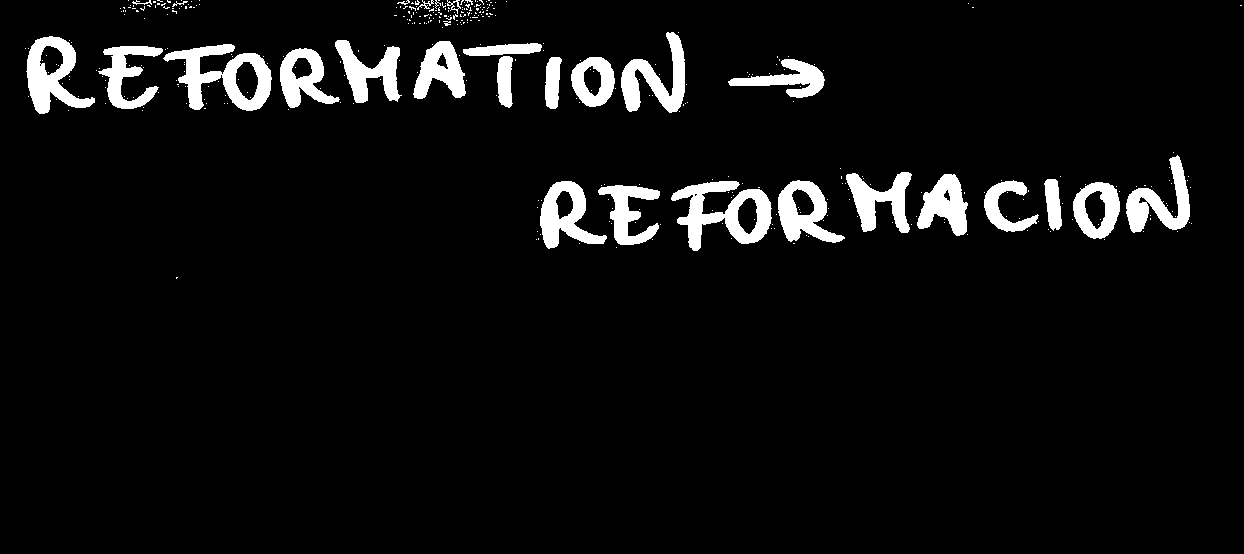 REFORMATION →
REFORMACION